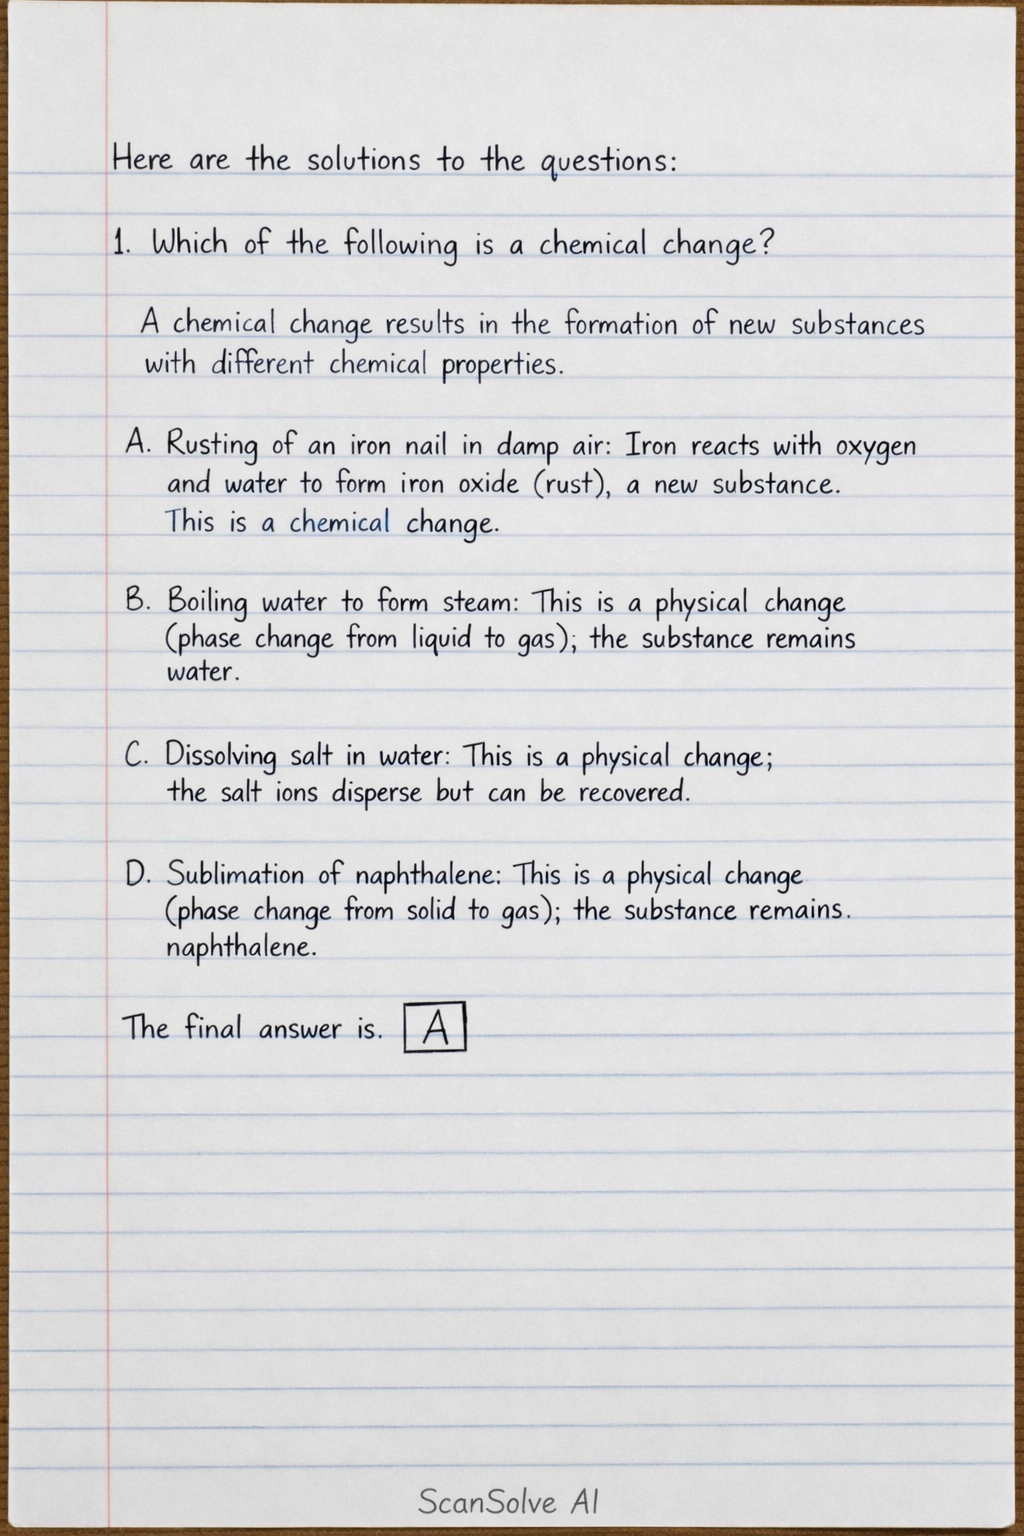 Here are the solutions to the questions:
1. Which of the following is a chemical change?
A chemical change results in the formation of new substances
with different chemical properties.
A. Rusting of an iron nail in damp air: Iron reacts with oxygen
and water to form iron oxide (rust), a new substance.
This is a chemical change.
B. Boiling water to form steam: This is a physical change
(phase change from liquid to gas); the substance remains
water.
C. Dissolving salt in water: This is a physical change;
the salt ions disperse but can be recovered.
D. Sublimation of naphthalene: This is a physical change
(phase change from solid to gas); the substance remains.
naphthalene.
The final answer is. A
ScanSolve AI